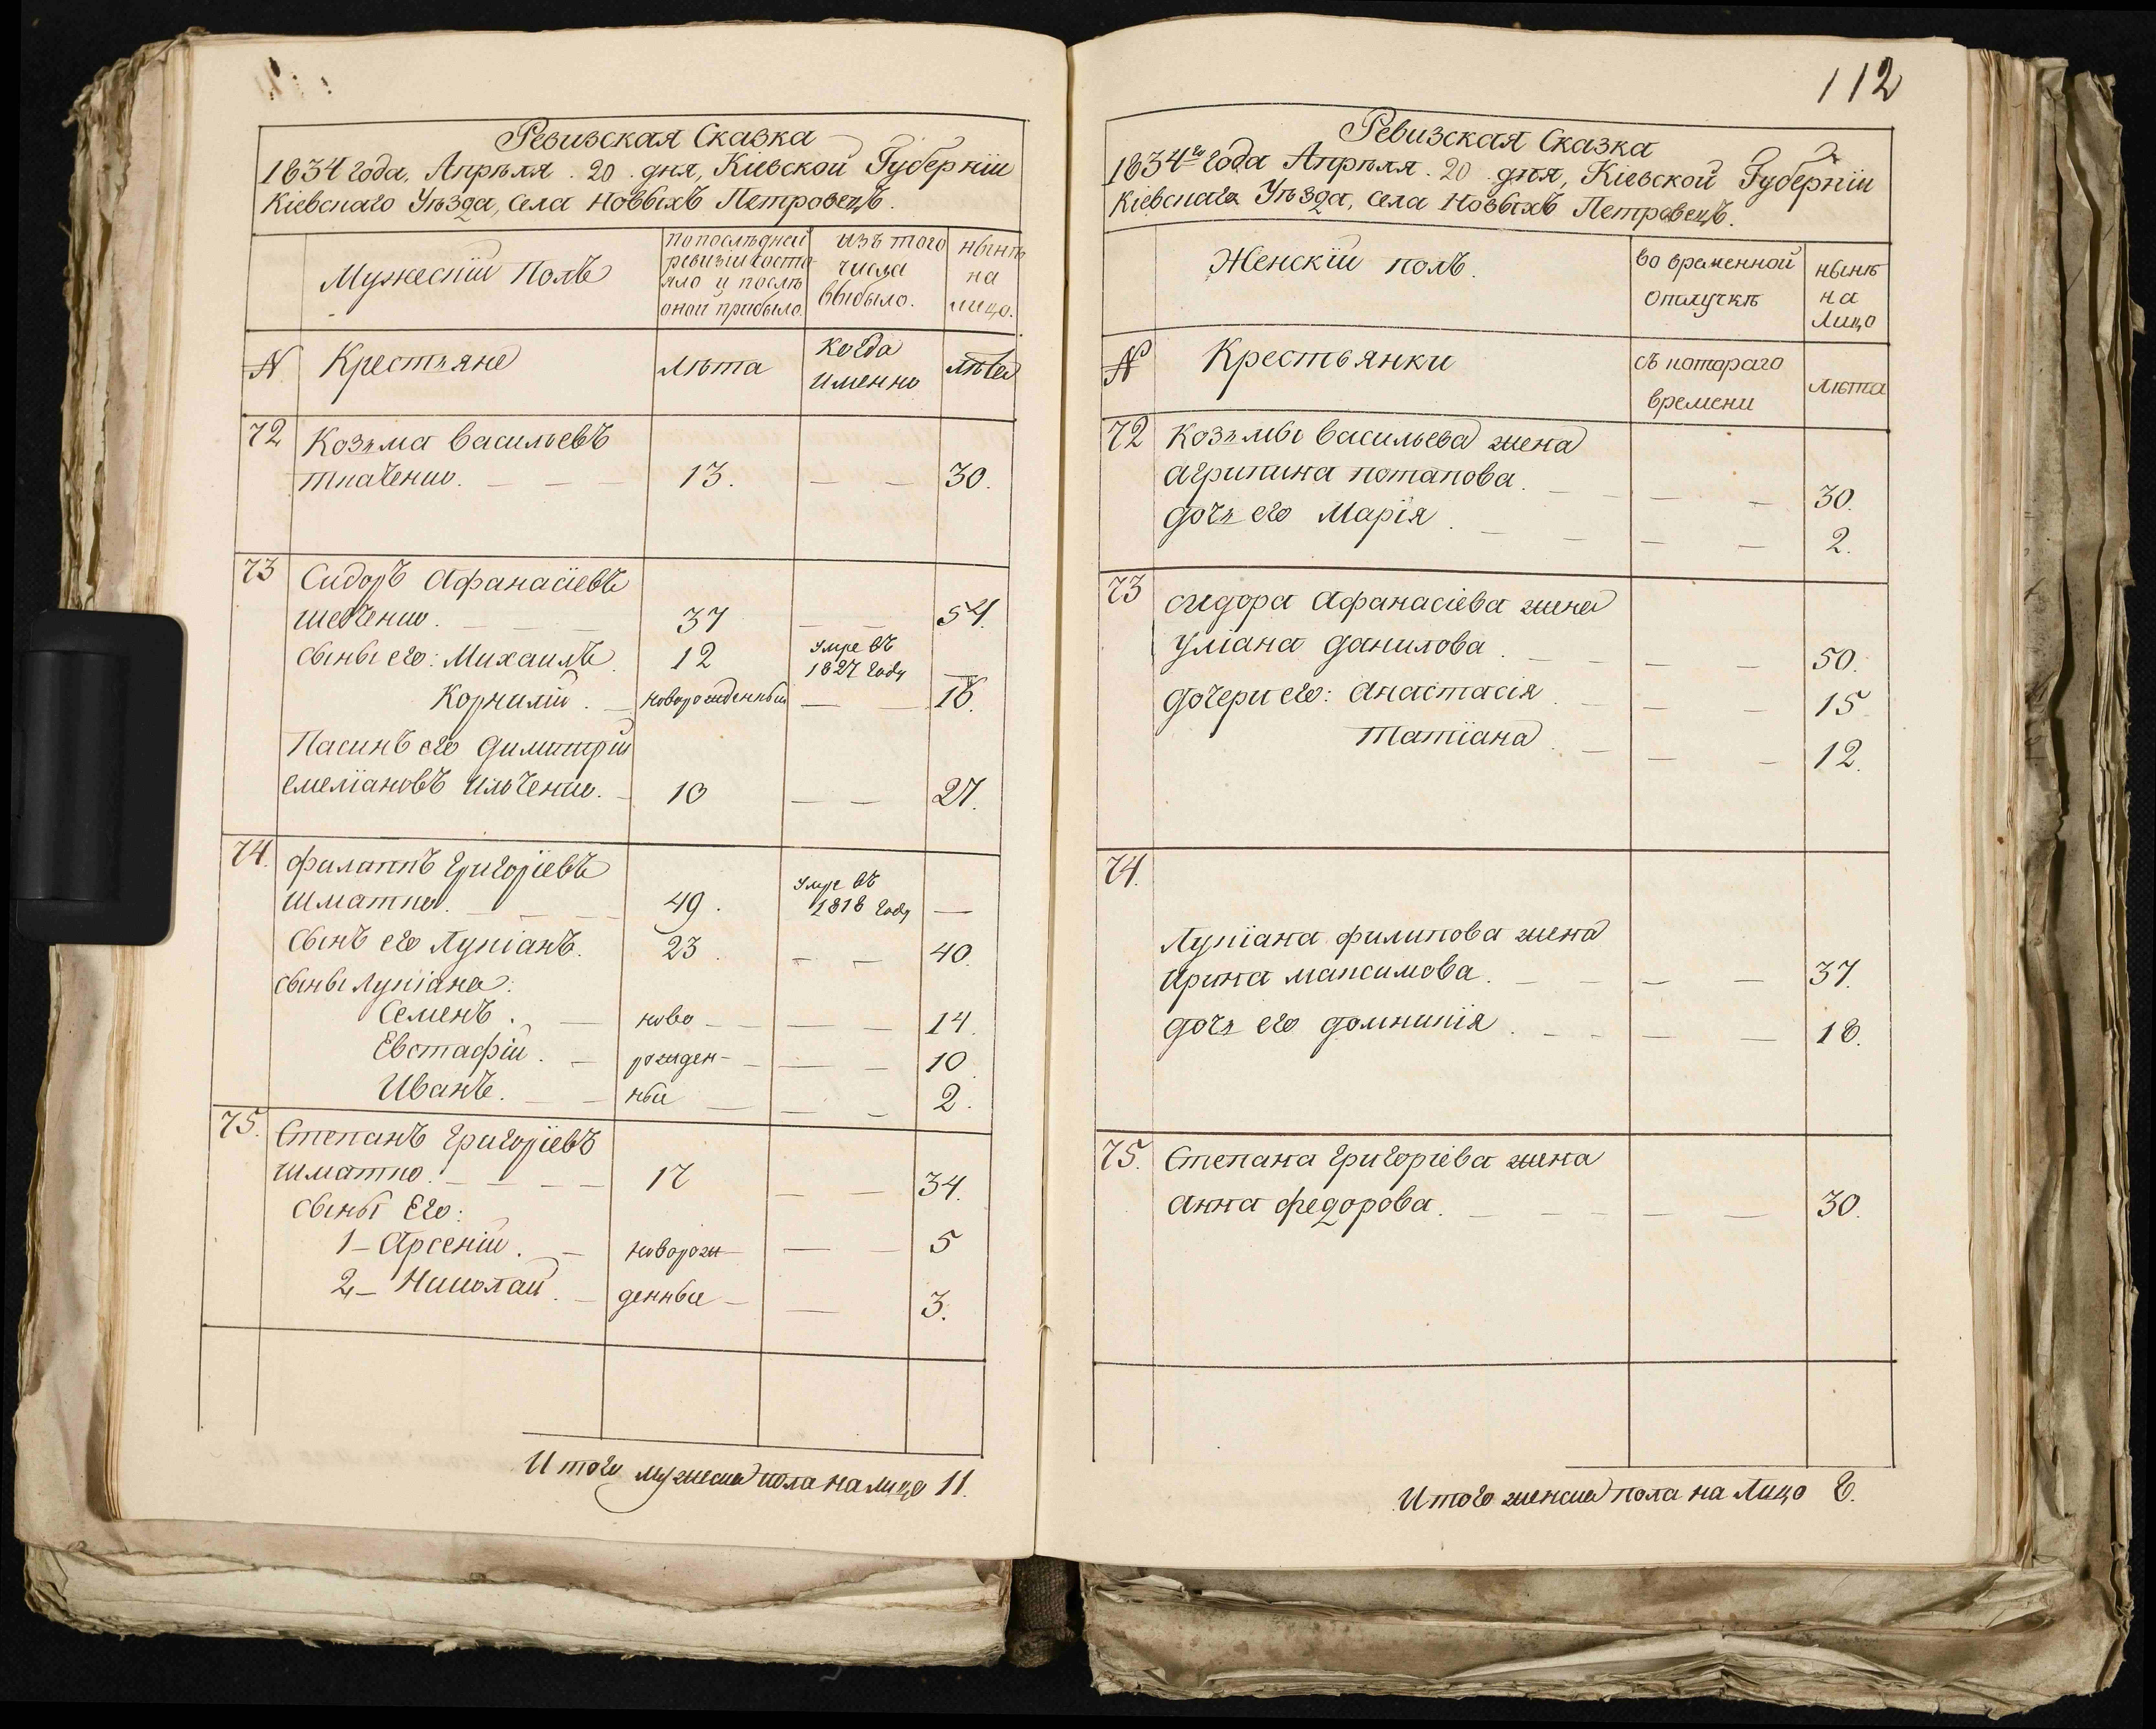 Ревизская Сказка
1834 года, Апрѣля 20 дня, Кіевской Губерніи
Кіевскаго Уѣзда, села Новыхъ Петровецъ.
Мужескій Полъ
по послѣдней ревизіи состояло и послѣ оной прибыло.
изъ того числа выбыло.
нынѣ на лицо.
№ Крестьяне
лѣта
когда именно
лѣта
72 Козьма Васильевъ
Ткаченко. 13. — — 30.
73 Сидоръ Афанасіевъ
Шевченко. 37 — — 54.
сыны его: Михаилъ. 12 умре въ 1827 году —
Корнилій. новорожденный — — 16.
Пасинъ его Димитрій
Емеліановъ Ильченко. 10 — — 27.
74. Филиппъ Григоріевъ
Шматко. 49. умре въ 1818 году —
сынъ его Лукіанъ. 23. — — 40.
сыны Лукіана:
Семенъ. ново- — — 14.
Евстафій. рожден- — — 10
Иванъ. ные — — 2.
75. Степанъ Григоріевъ
Шматко. 17 — — 34.
сыны Его:
1- Арсеній. новорож- — — 5
2- Николай. денные — — 3.
Итого мужеска пола на лицо 11.
112
Ревизская Сказка
1834го года Апрѣля 20 дня, Кіевской Губерніи
Кіевскаго Уѣзда, села Новыхъ Петровецъ.
Женскій полъ.
во временной отлучкѣ
нынѣ на лицо
№ Крестьянки
съ котораго времени
лѣта
72 Козьмы Васильева жена
Агрипина Потапова. — — 30.
дочь его Марія. — — 2.
73 Сидора Афанасіева жена
Уліана Данилова. — — 50.
дочери его: Анастасія. — — 15
Татіана. — — 12.
74.
Лукіана Филипова жена
Ирина Максимова. — — 37.
дочь его Домникія. — — 18.
75. Степана Григоріева жена
Анна Федорова. — — 30.
Итого женска пола на Лицо 8.